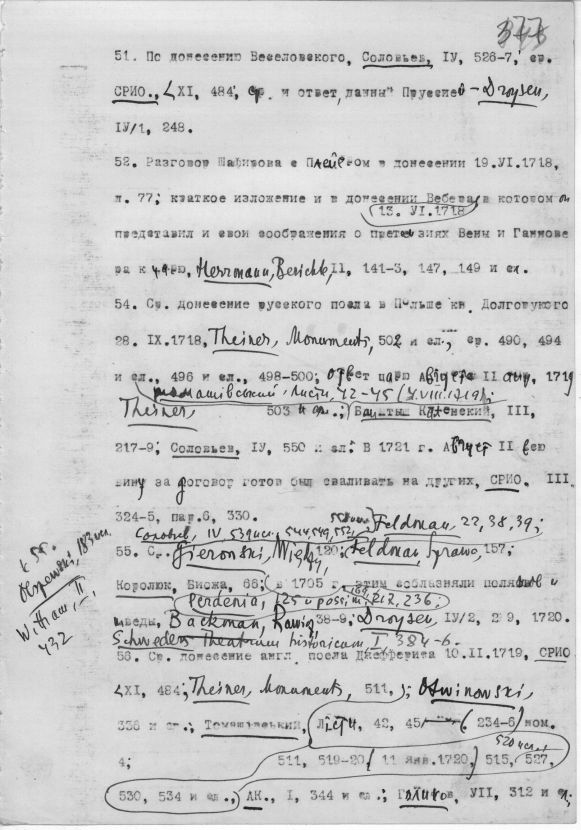 377
51. По донесению Веселовского, Соловьев, IV, 526-7, ср.
СРИО., LXI, 484, ср. и ответ, данный Пруссией - Droysen,
IV/1, 248.
52. Разговор Шафирова с Плейером в донесении 19.VI.1718,
л. 77; краткое изложение и в донесении Вебера в котором он
13. VI.1718
представил и свои соображения о претензиях Вены и Ганнове
ра к царю, Herrmann, Berichte, II, 141-3, 147, 149 и сл.
54. Ср. донесение русского посла в Польше кн. Долгорукого
28. IX.1718, Theiner, Monuments, 502 и сл., ср. 490, 494
и сл., 496 и сл., 498-500; ответ царю Августа II 1719
Томашівський Листи, 42-45 (7.VIII.1719);
Theiner, 503 и сл.; Бантыш Каменский, III,
217-9; Соловьев, IV, 550 и сл. В 1721 г. Август II всю
вину за договор готов был сваливать на других, СРИО, III
324-5, пар.6, 330.
Соловьев, IV 539 и сл. 544, 549, 552, Feldman 22, 38, 39;
55. С. Gieronski, 120; Feldman Sprawa, 157;
к 55. 183 и сл.
Witham II, 432
Королюк, Биржа, 66; (в 1705 г. этим соблазняли поляков и
Perdenia, 125 u passim, 212, 236;
шведы, Backman, 38-9; Droysen, IV/2, 2 9, 1720.
Schweders Theatrum historicum I 384-6.
56. Ср. донесение англ. посла Джефферита 10.II.1719, СРИО
LXI, 484; Theiner, Monuments, 511, ; Otwinowski,
336 и сл.; Томашівський, Лісти, 42, 45 (234-6) ком.
520 и след
4; 511, 519-20, (11 янв.1720) 515, 527,
530, 534 и сл., АК., I, 344 и сл.; Голиков, VII, 312 и сл;